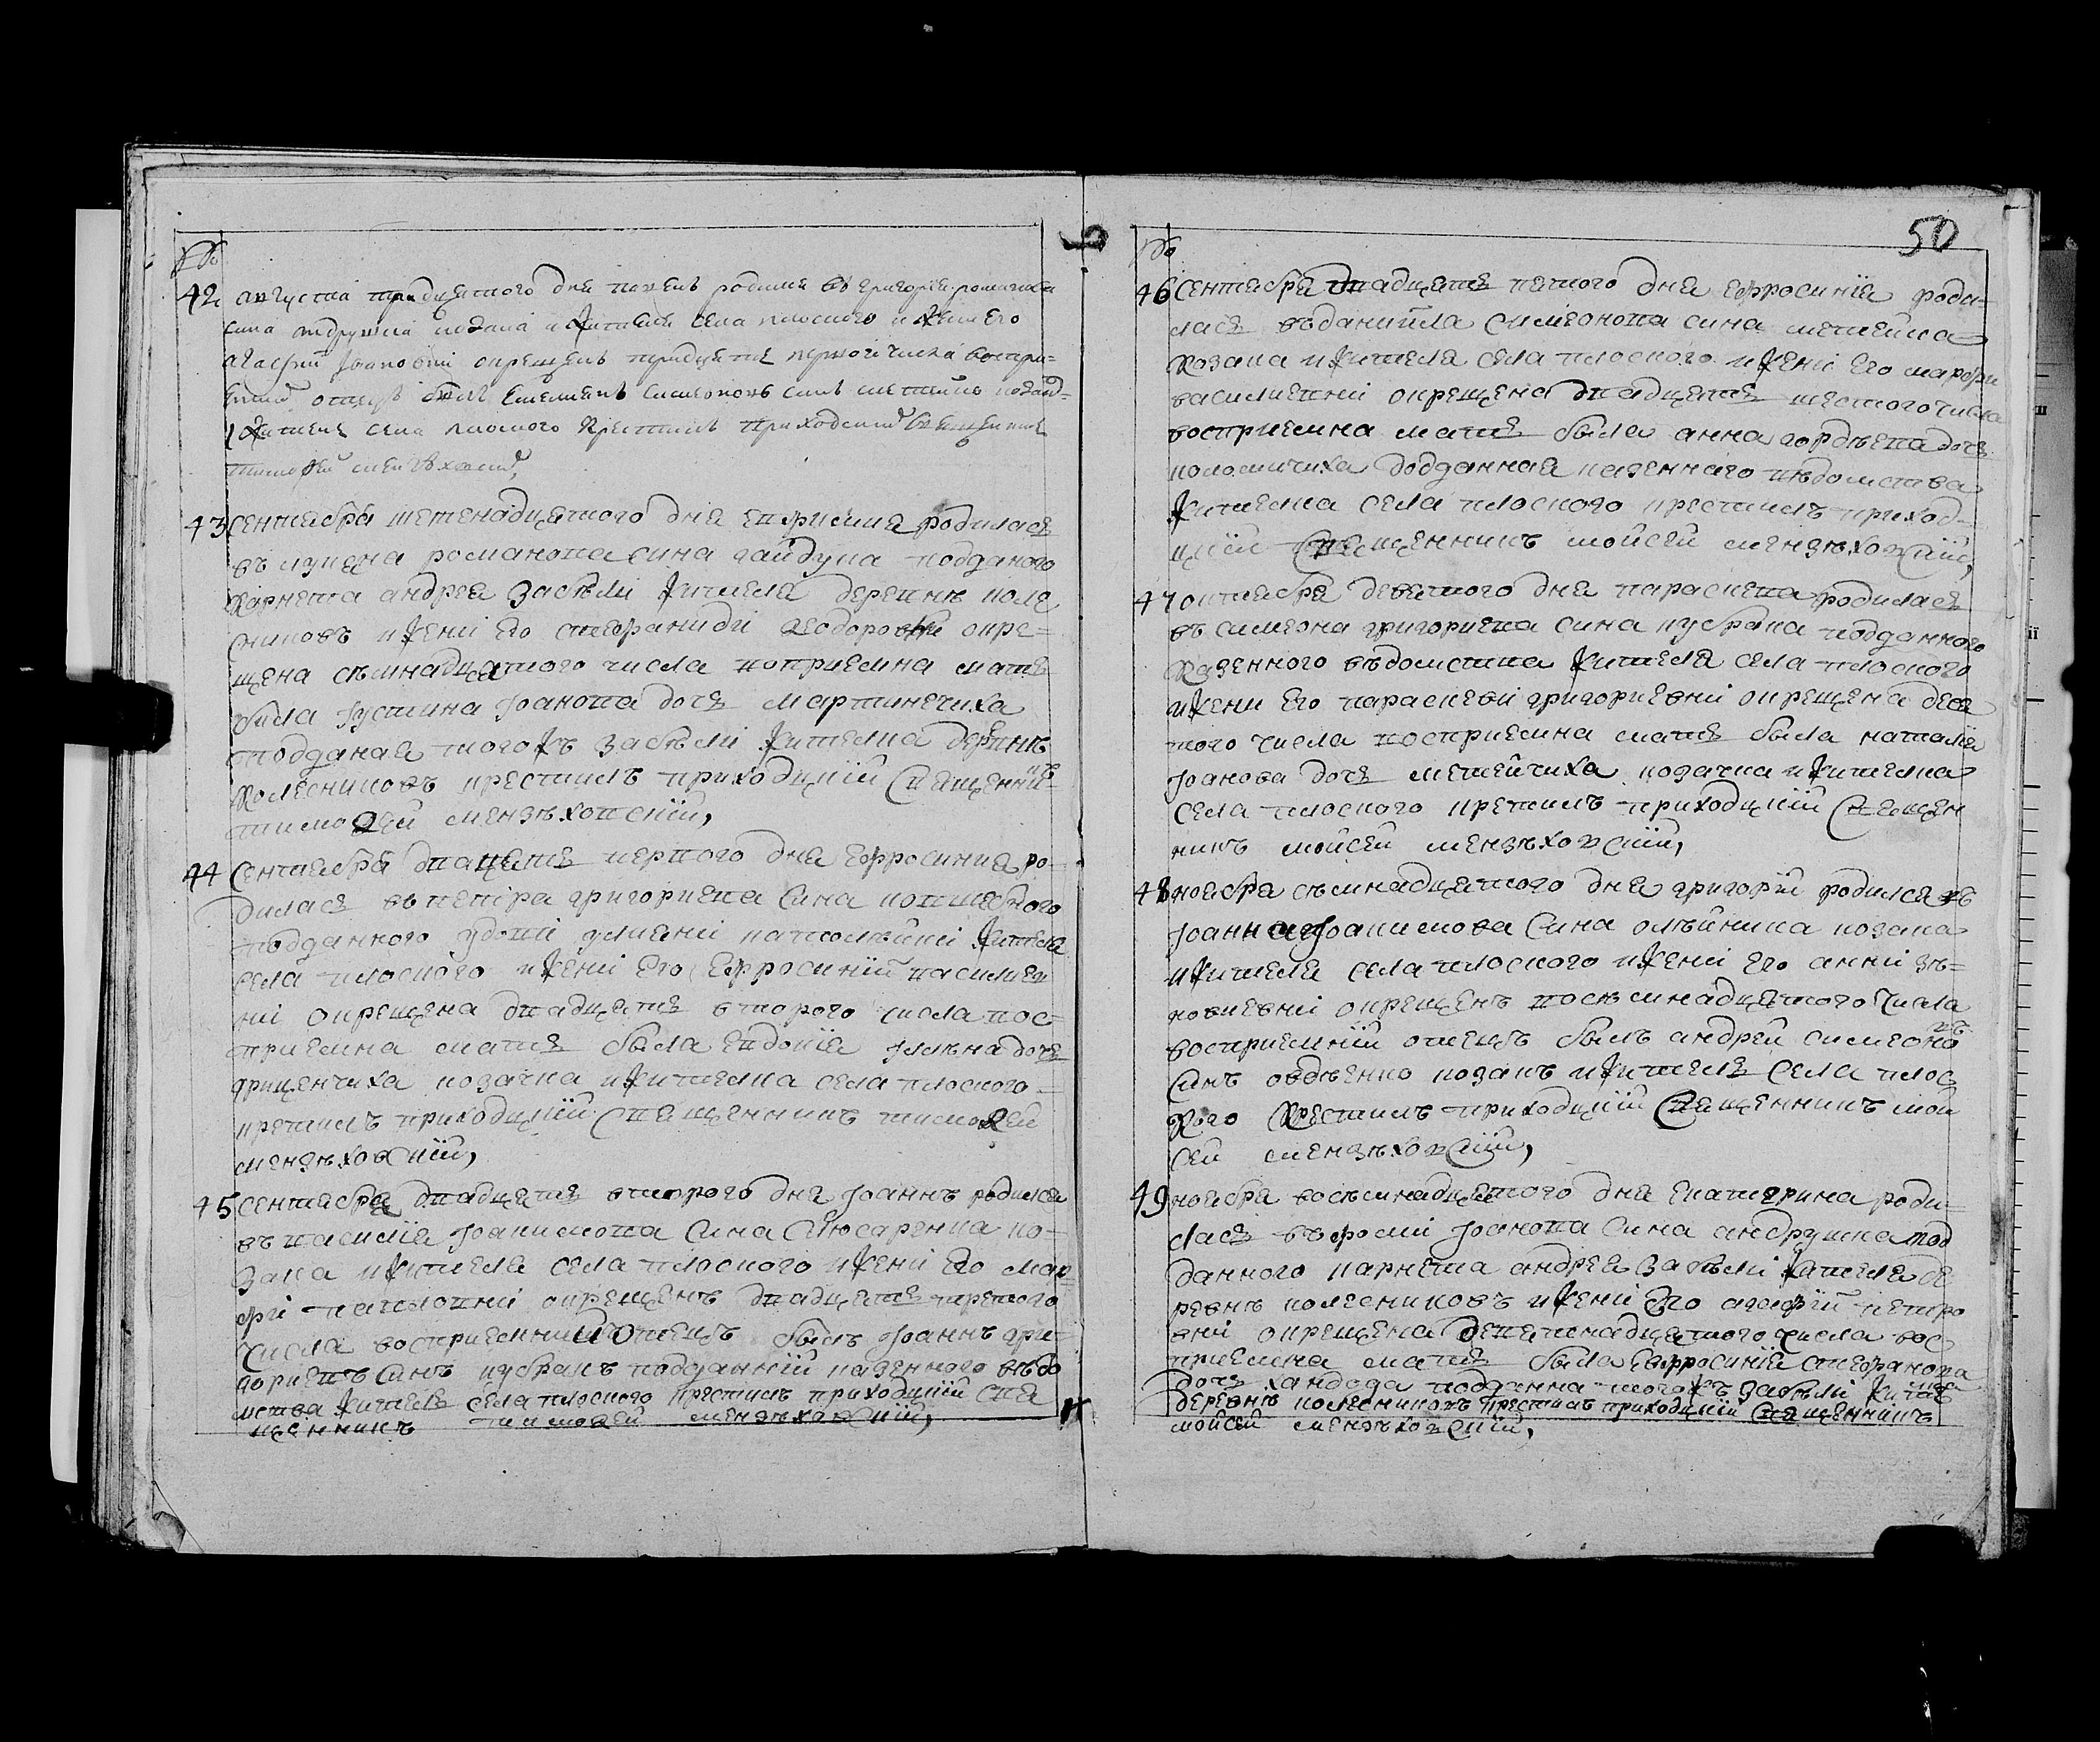 №
42 августа тридцятого дня родился въ григория романова
сина андрушка козака и жителя села плоского и жени его
агафии Іоановни окрещенъ тридцять первого числа воспри=
емний отецъ билъ симеоновъ синъ козакъ
и житель села плоского крестилъ приходский священникъ
тимофей мензѣховский
43 сентября шетенадцятого дня евфимия родилася
въ луцена романова сина гайдука подданого
карнета андрея забѣли жителя деревнѣ коле
сниковъ и жени его стефаниди феодоровни окре=
щена съмнадцятого числа воприемна мать
била Іустина Іоанова дочь мартинечиха
подданая тогожъ забѣли жителка деревнѣ
колесниковъ крестилъ приходцкій священникъ
тимофей мензѣховскій,
44 Сентября двацать первого дня ефросиния ро-
дилася въ петра григориева сина
подданного удови улиани жителя
села плоского и жени его Ефросинїи василиев
ні окрещена двадцять второго числа вос-
приемна мать была евдокїя дочь
гриценчиха козачка и жителка села плоского
кретилъ приходцкїй священникъ тимофей
мензѣховскїй,
45 сентября двадцять второго дня Іоаннъ родился
въ василїя Іоакимова Сина Слюсаренка ко-
зака и жителя села плоского и жени его мар
фі павловні окрещенъ двадцять третого
Числа восприемний Отецъ былъ Іоаннъ гри-
гориевъ Синъ кубракъ подданній казенного вѣдо
мства житель села плоского крестилъ приходцкїй свя
щенникъ тимофей мензѣховскїй,
50
№
46 Сентября двадцять пятого дня ефросинїя роди-
лася въ даниїла симеонова сина метейка
козака и жителя села плоского и жени его марфи
василиевни окрещена двадцять шестого числа
восприемна мать была анна гордѣева дочь
коломичиха подданная казенного вѣдомства
жителка села плоского крестилъ приход-
цкїй священникъ мойсей мензѣховскїй,
47 октября девятого дня параскева родилася
въ симеона григориева сина кубрака подданного
казенного вѣдомства жителя села плоского
и жени его параскеви григориевні окрещена деся
того числа восприемна мать была наталїя
Іоанова дочь метейчиха козачка и жителка
села плоского кретилъ приходцкїй священ
никъ мойсей мензѣховскїй,
48 ноября съмнадцятого дня григорїй родился въ
Іоанна Іоакимова Сина олѣйника козака
и жителя села плоского и жени его анні зѣ=
новиевні окрещенъ восѣмнадцятого числа
восприемнїй отецъ былъ андрей симеоновъ
Синъ овдѣенко козакъ и житель Села плос
кого Крестилъ приходцкїй Священникъ мой
сей мензѣховскїй,
49 ноября восѣмнадцятого дня Екатерина роди-
лася въ фомі Іоанова Сина андрушка под
данного карнета андрея забѣлі жителя де
ревнѣ колесниковъ и жені его агафїй петро
вні окрещена деветнадцятого числа вос
приемна мать была Ефросинїя стефанова
дочь хандога подданна тогожъ забѣлі
деревнѣ колесниковъ крестилъ приходцкїй священникъ
мойсей мензѣховскїй,